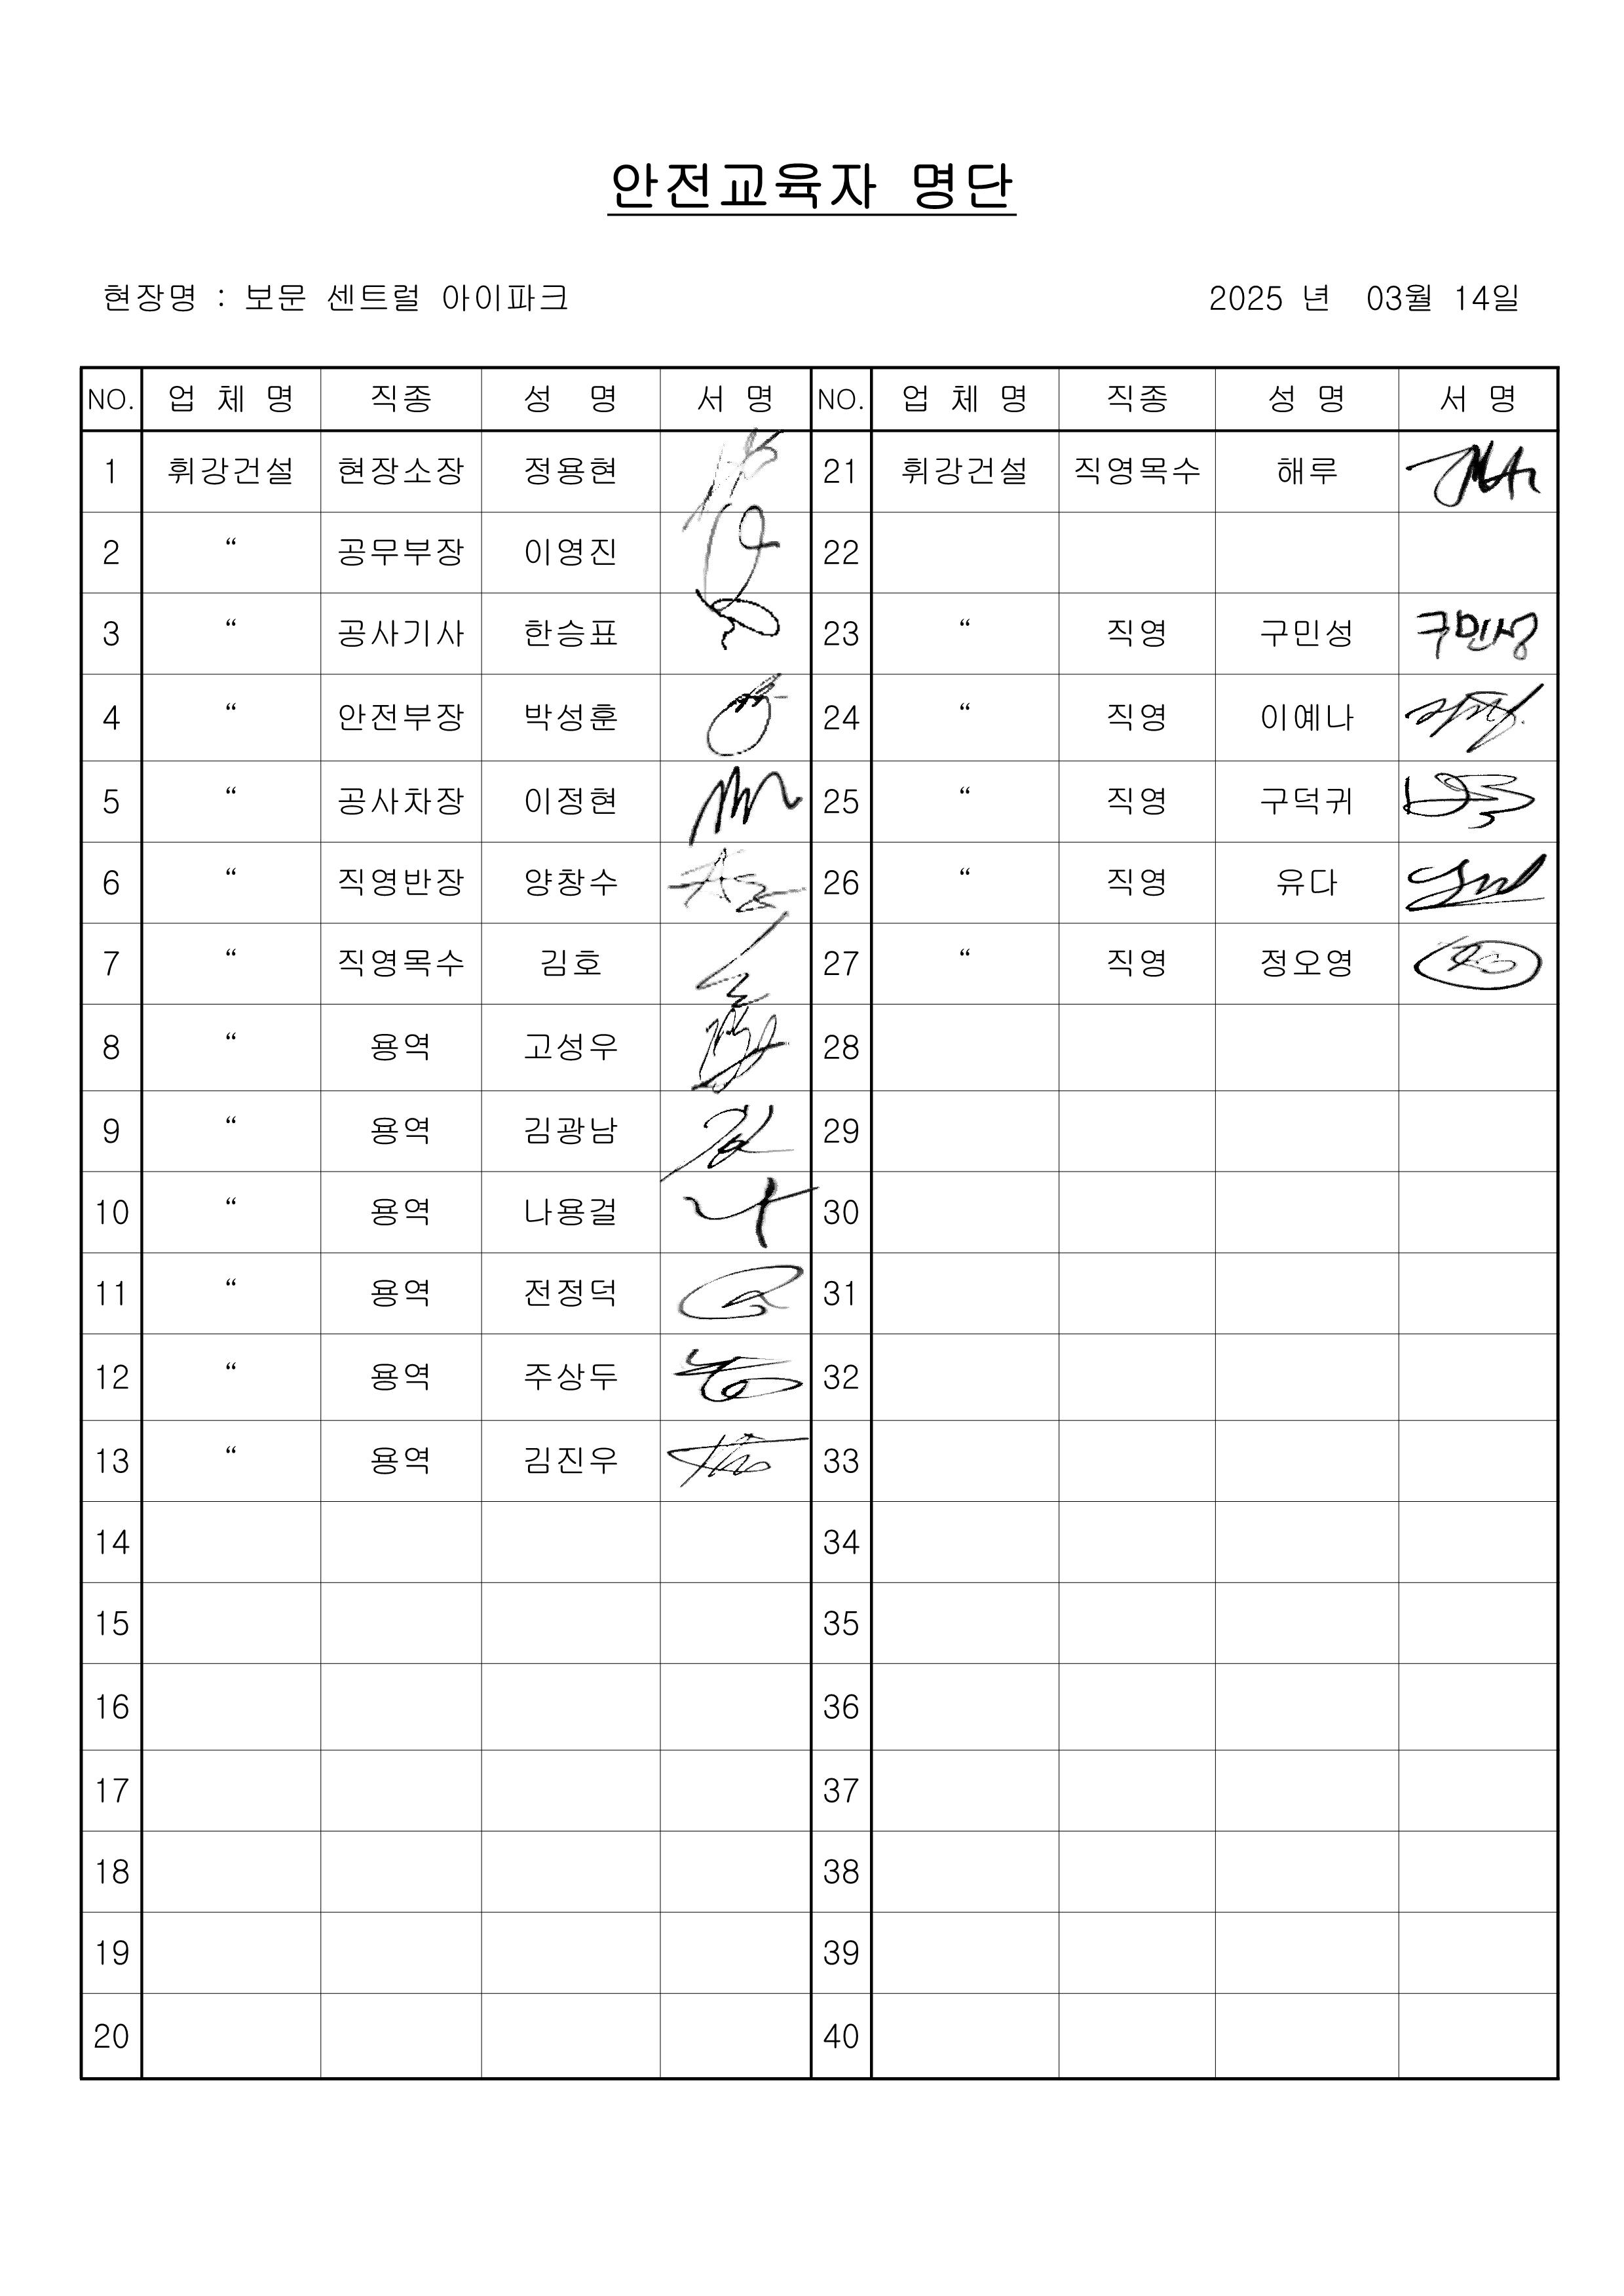 안전교육자 명단
현장명 : 보문 센트럴 아이파크 2025 년 03월 14일
NO. 업 체 명 직종 성 명 서 명 NO. 업 체 명 직종 성 명 서 명
1 휘강건설 현장소장 정용현 21 휘강건설 직영목수 해루
2 “ 공무부장 이영진 22
3 “ 공사기사 한승표 23 “ 직영 구민성 구민성
4 “ 안전부장 박성훈 24 “ 직영 이예나
5 “ 공사차장 이정현 25 “ 직영 구덕귀
6 “ 직영반장 양창수 26 “ 직영 유다
7 “ 직영목수 김호 27 “ 직영 정오영
8 “ 용역 고성우 28
9 “ 용역 김광남 29
10 “ 용역 나용걸 나 30
11 “ 용역 전정덕 31
12 “ 용역 주상두 32
13 “ 용역 김진우 33
14 34
15 35
16 36
17 37
18 38
19 39
20 40